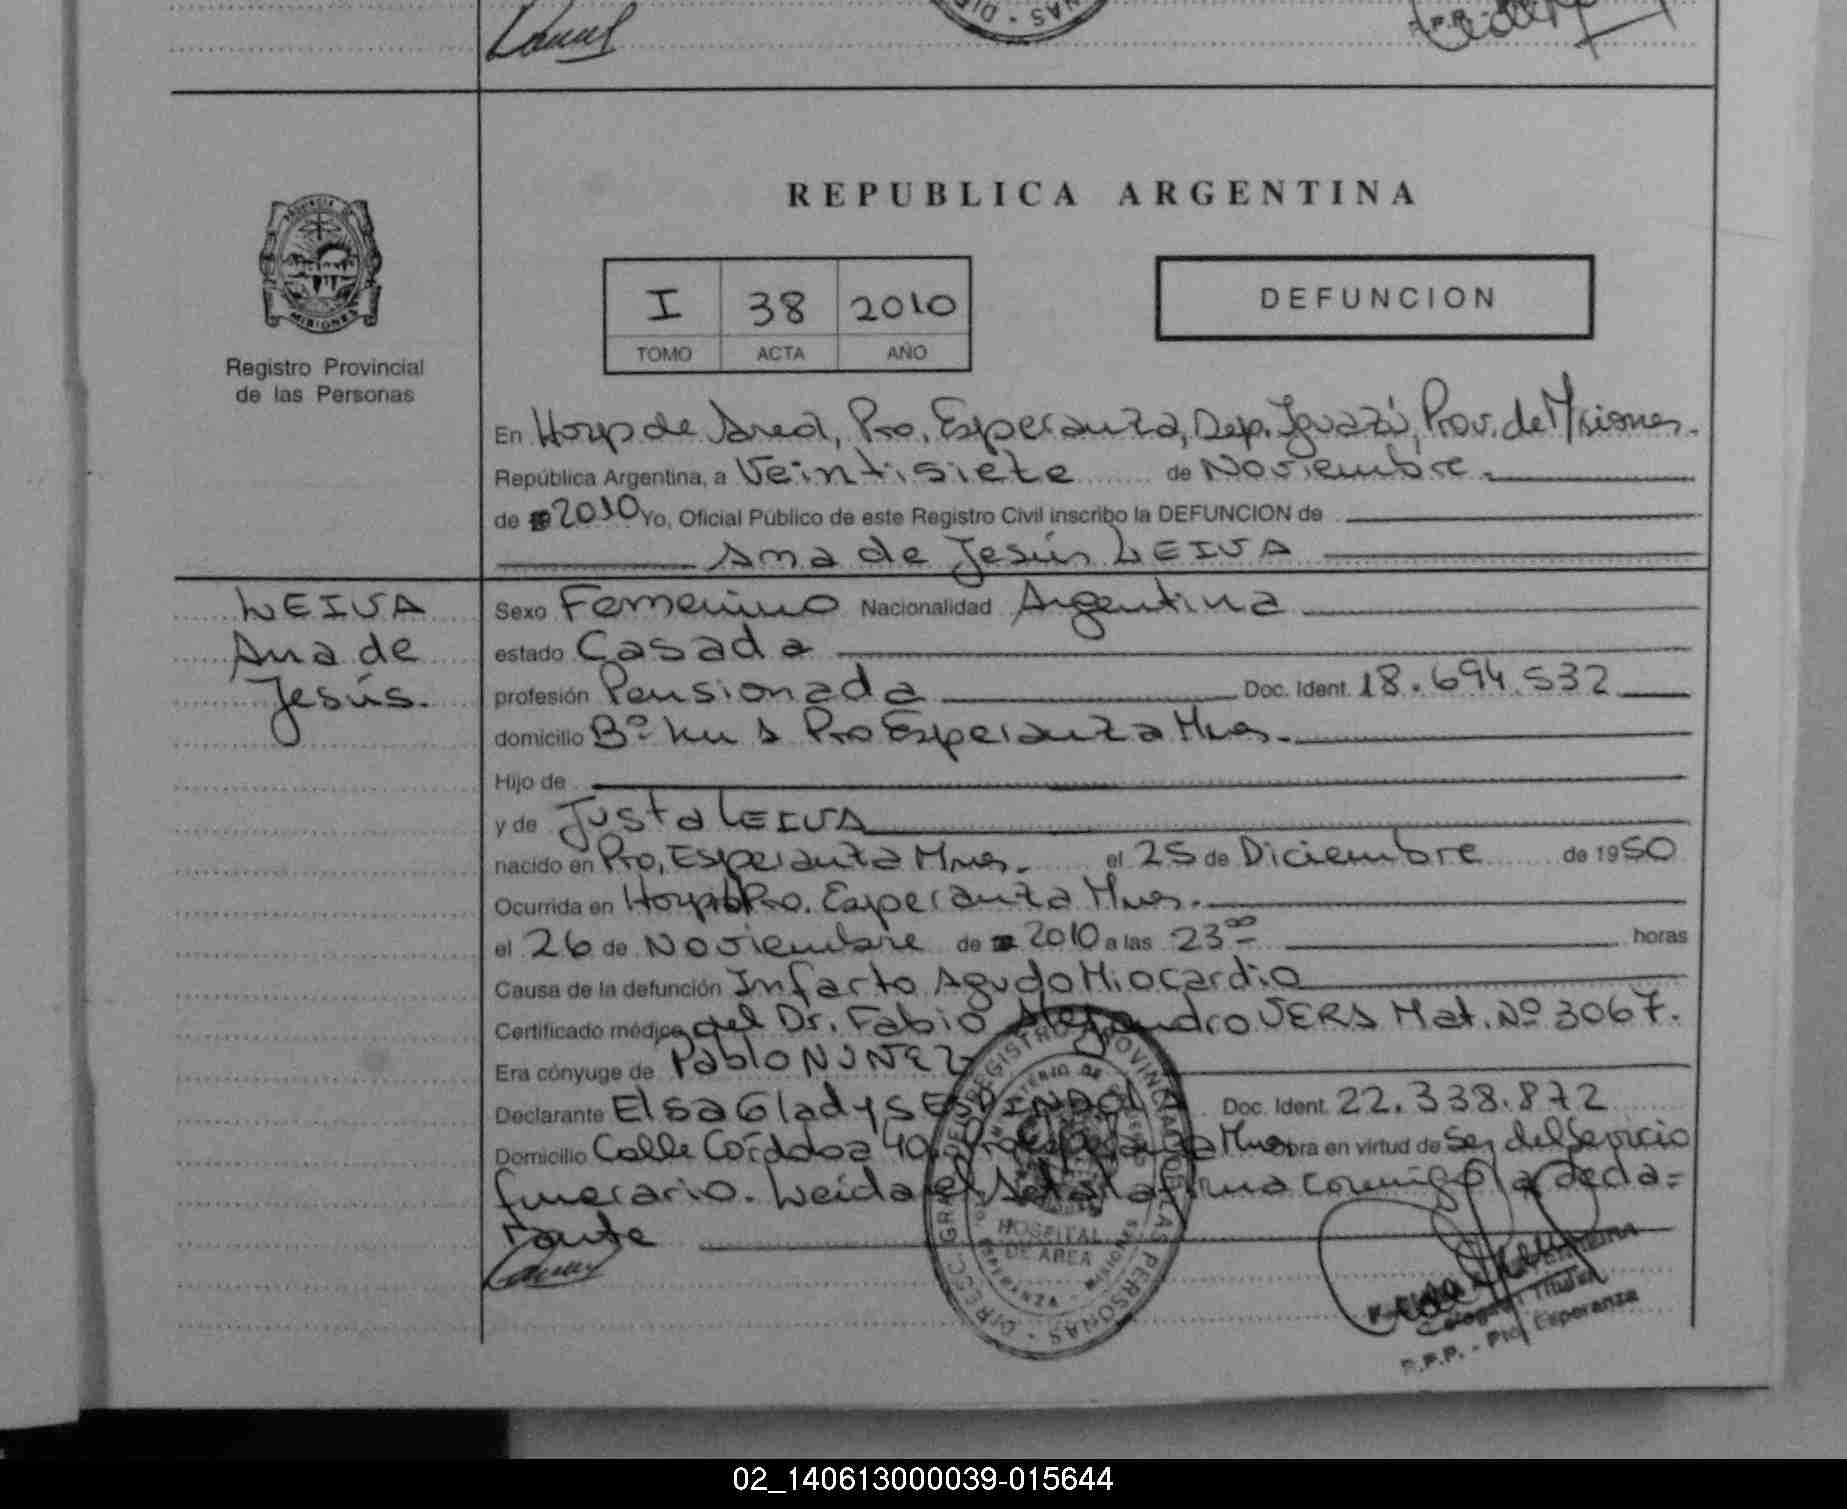 REPUBLICA ARGENTINA
I 38 2010
TOMO ACTA AÑO
DEFUNCION
MISIONES
Registro Provincial
de las Personas
En Hosp de Area, Pto. Esperanza, Dep. Iguazú, Prov. de Misiones.
República Argentina, a Veintisiete de Noviembre.
de 2010 Yo, Oficial Público de este Registro Civil inscribo la DEFUNCION de
Ana de Jesús LEIVA
LEIVA
Ana de
Jesús.
Sexo Femenino Nacionalidad Argentina
estado Casada
profesión Pensionada Doc. Ident. 18.694.532
domicilio Bº Pto Esperanza Mnes.
Hijo de
y de Justa LEIVA
nacido en Pto. Esperanza Mnes. el 25 de Diciembre de 1950
Ocurrida en Hosp Pto. Esperanza Mnes.
el 26 de Noviembre de 2010 a las 23 00 horas
Causa de la defunción Infarto Agudo Miocardio
Certificado médico del Dr. Fabio Alejandro VERA Mat. Nº 3067.
Era cónyuge de Pablo NUÑEZ
Declarante Elsa Gladys ESPINDOLA Doc. Ident. 22.338.872
Domicilio Calle Córdoba 40 Pto Esperanza Mnes. Obra en virtud de Ser del Servicio
funerario. Leida el Acta la firma conmigo la decla=
rante
HOSPITAL
DE AREA
ESPERANZA - MISIONES
Titular
R.P.P. - Pto. Esperanza
02_140613000039-015644